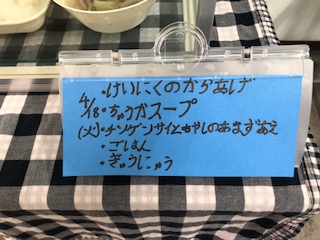 ・けいにくのからあげ
4/18・ちゅうかスープ
(火)・チンゲンサイともやしのあまずあえ
・ごはん
・ぎゅうにゅう